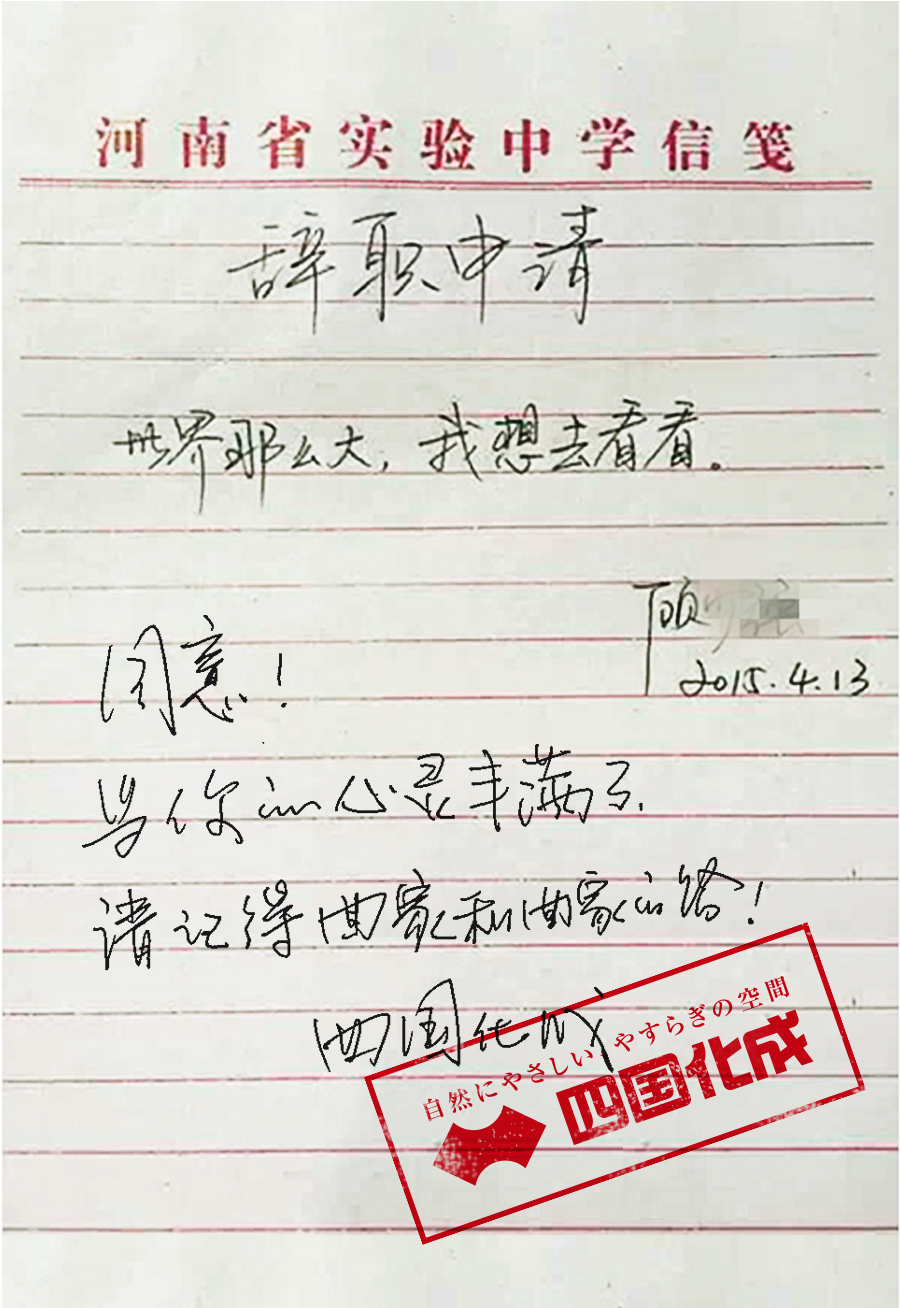 河南省实验中学信笺
辞职申请
世界那么大，我想去看看。
顾
2015.4.13
同意！
当你的心灵丰满了，
请记得回家和回家的路！
四国化成
自然にやさしい やすらぎの空間
四国化成